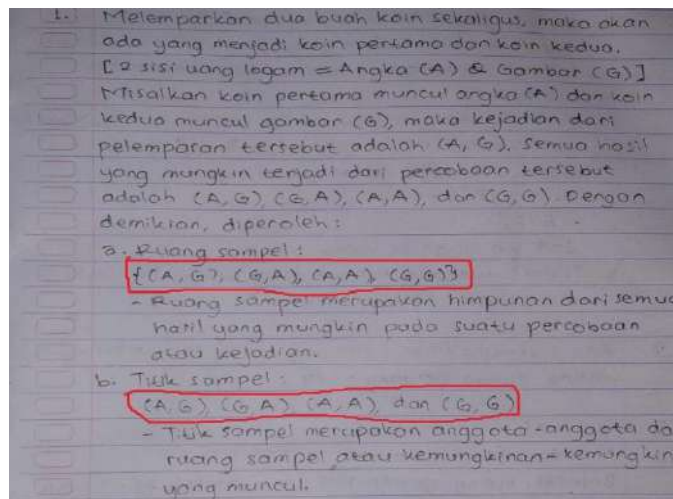 1. Melemparkan dua buah koin sekaligus, maka akan
ada yang menjadi koin pertama dan koin kedua.
[2 sisi uang logam = Angka (A) & Gambar (G)]
Misalkan koin pertama muncul angka (A) dan koin
kedua muncul gambar (G), maka kejadian dari
pelemparan tersebut adalah (A, G). Semua hasil
yang mungkin terjadi dari percobaan tersebut
adalah (A, G) (G, A), (A, A), dan (G, G). Dengan
demikian, diperoleh :
a. Ruang sampel :
{(A, G), (G, A), (A, A), (G, G)}
- Ruang sampel merupakan himpunan dari semua
hasil yang mungkin pada suatu percobaan
atau kejadian.
b. Titik sampel :
(A, G), (G, A) (A, A), dan (G, G)
- Titik sampel merupakan anggota-anggota da
ruang sampel atau kemungkinan-kemungkin
yang muncul.